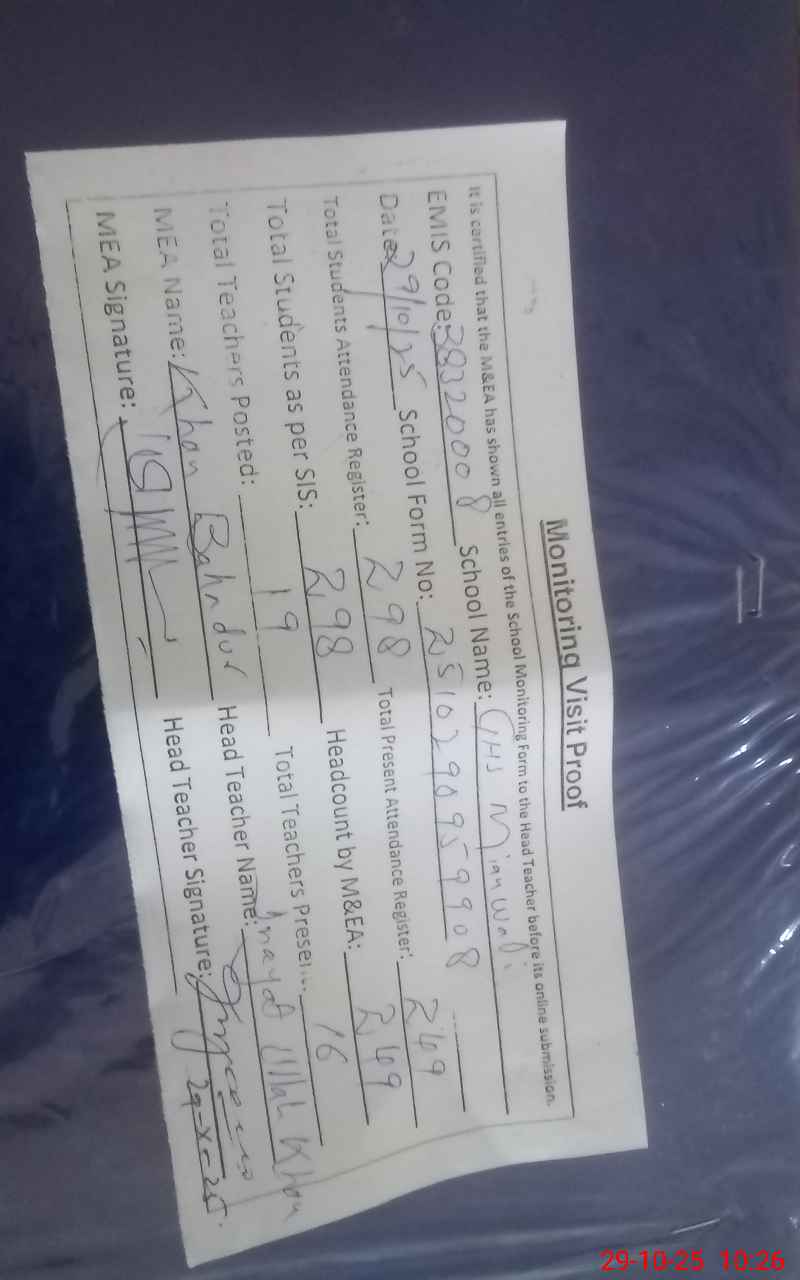 Monitoring Visit Proof
It is certified that the M&EA has shown all entries of the School Monitoring Form to the Head Teacher before its online submission.
EMIS Code: 38320008 School Name: GHS Mianwali
Date: 29/10/25 School Form No: 2510290959908
Total Students Attendance Register: 298 Total Present Attendance Register: 249
Total Students as per SIS: 298 Headcount by M&EA: 249
Total Teachers Posted: 19 Total Teachers Present: 16
MEA Name: Khan Bahadur Head Teacher Name: Inayat Ullah Khan
MEA Signature: Head Teacher Signature:
29-X-25
29-10-25 10:26